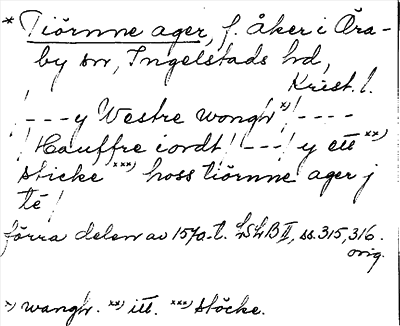 * Tiörnne ager, f. åker i Öra-
by sn, Ingelstads hd,
Krist. l.
! - - - y Westre wongh x) ! - - - -
! Hauffre iordt ! - - - ! y ett xx)
sticke xxx) hoss tiörnne ager j
té !
förra delen av 1570-t. LSLB II, ss. 315, 316.
orig.
x) wangh. xx) itt. xxx) stöcke.